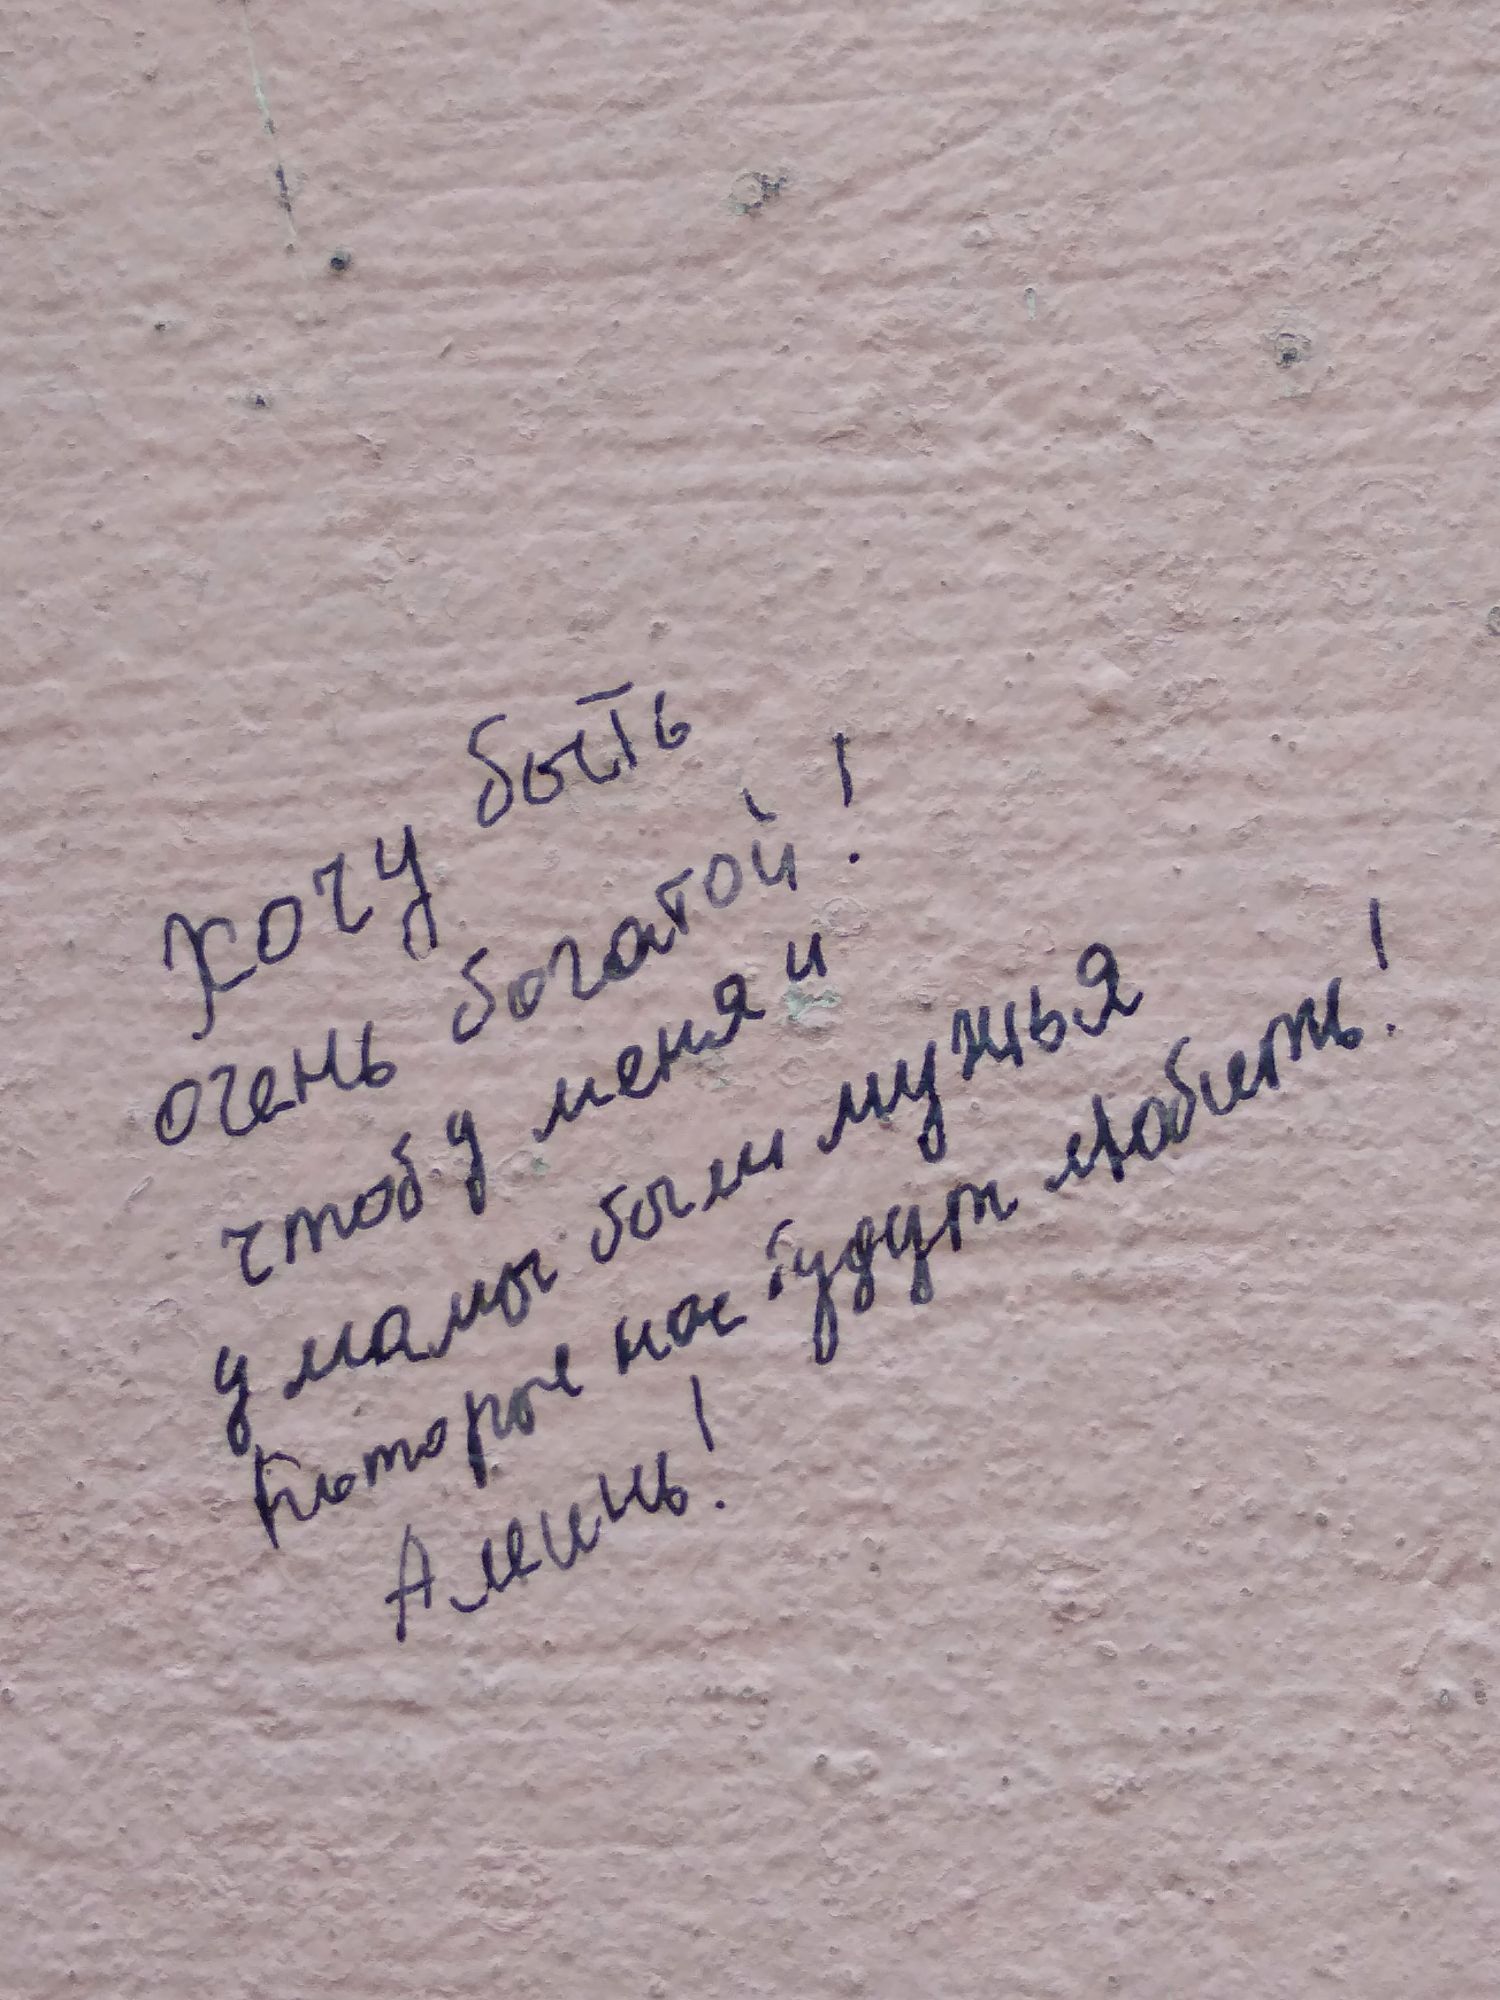 Хочу быть
очень богатой!
чтоб у меня и
у мамы были мужья
которые нас будут любить!
Аминь!